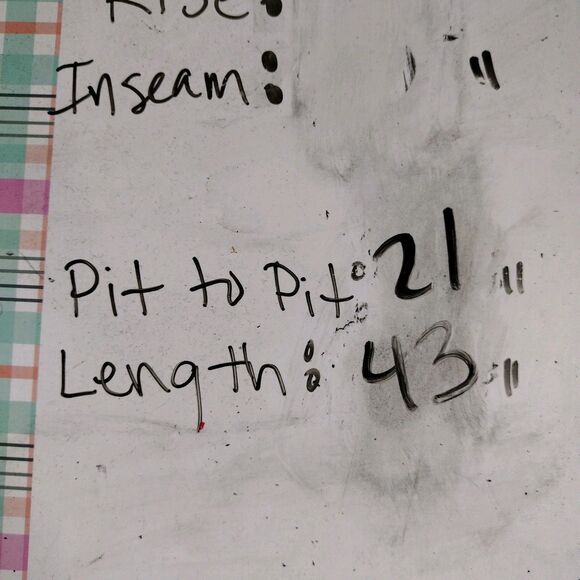 Rise:
Inseam: "
Pit to Pit: 21 "
Length: 43 "